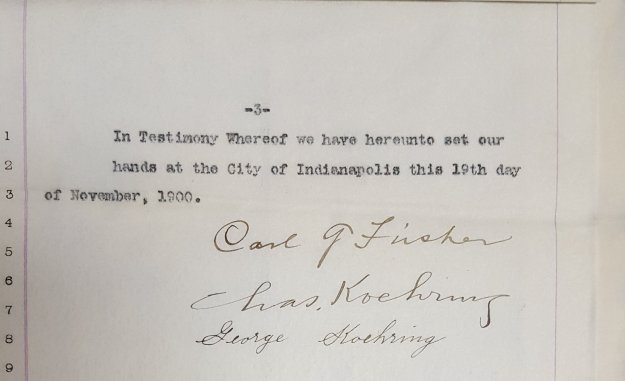 -3-
1 In Testimony Whereof we have hereunto set our
2 hands at the City of Indianapolis this 19th day
3 of November, 1900.
4
Carl G Fisher
5
6
Chas. Koehring
7
8 George Koehring
9